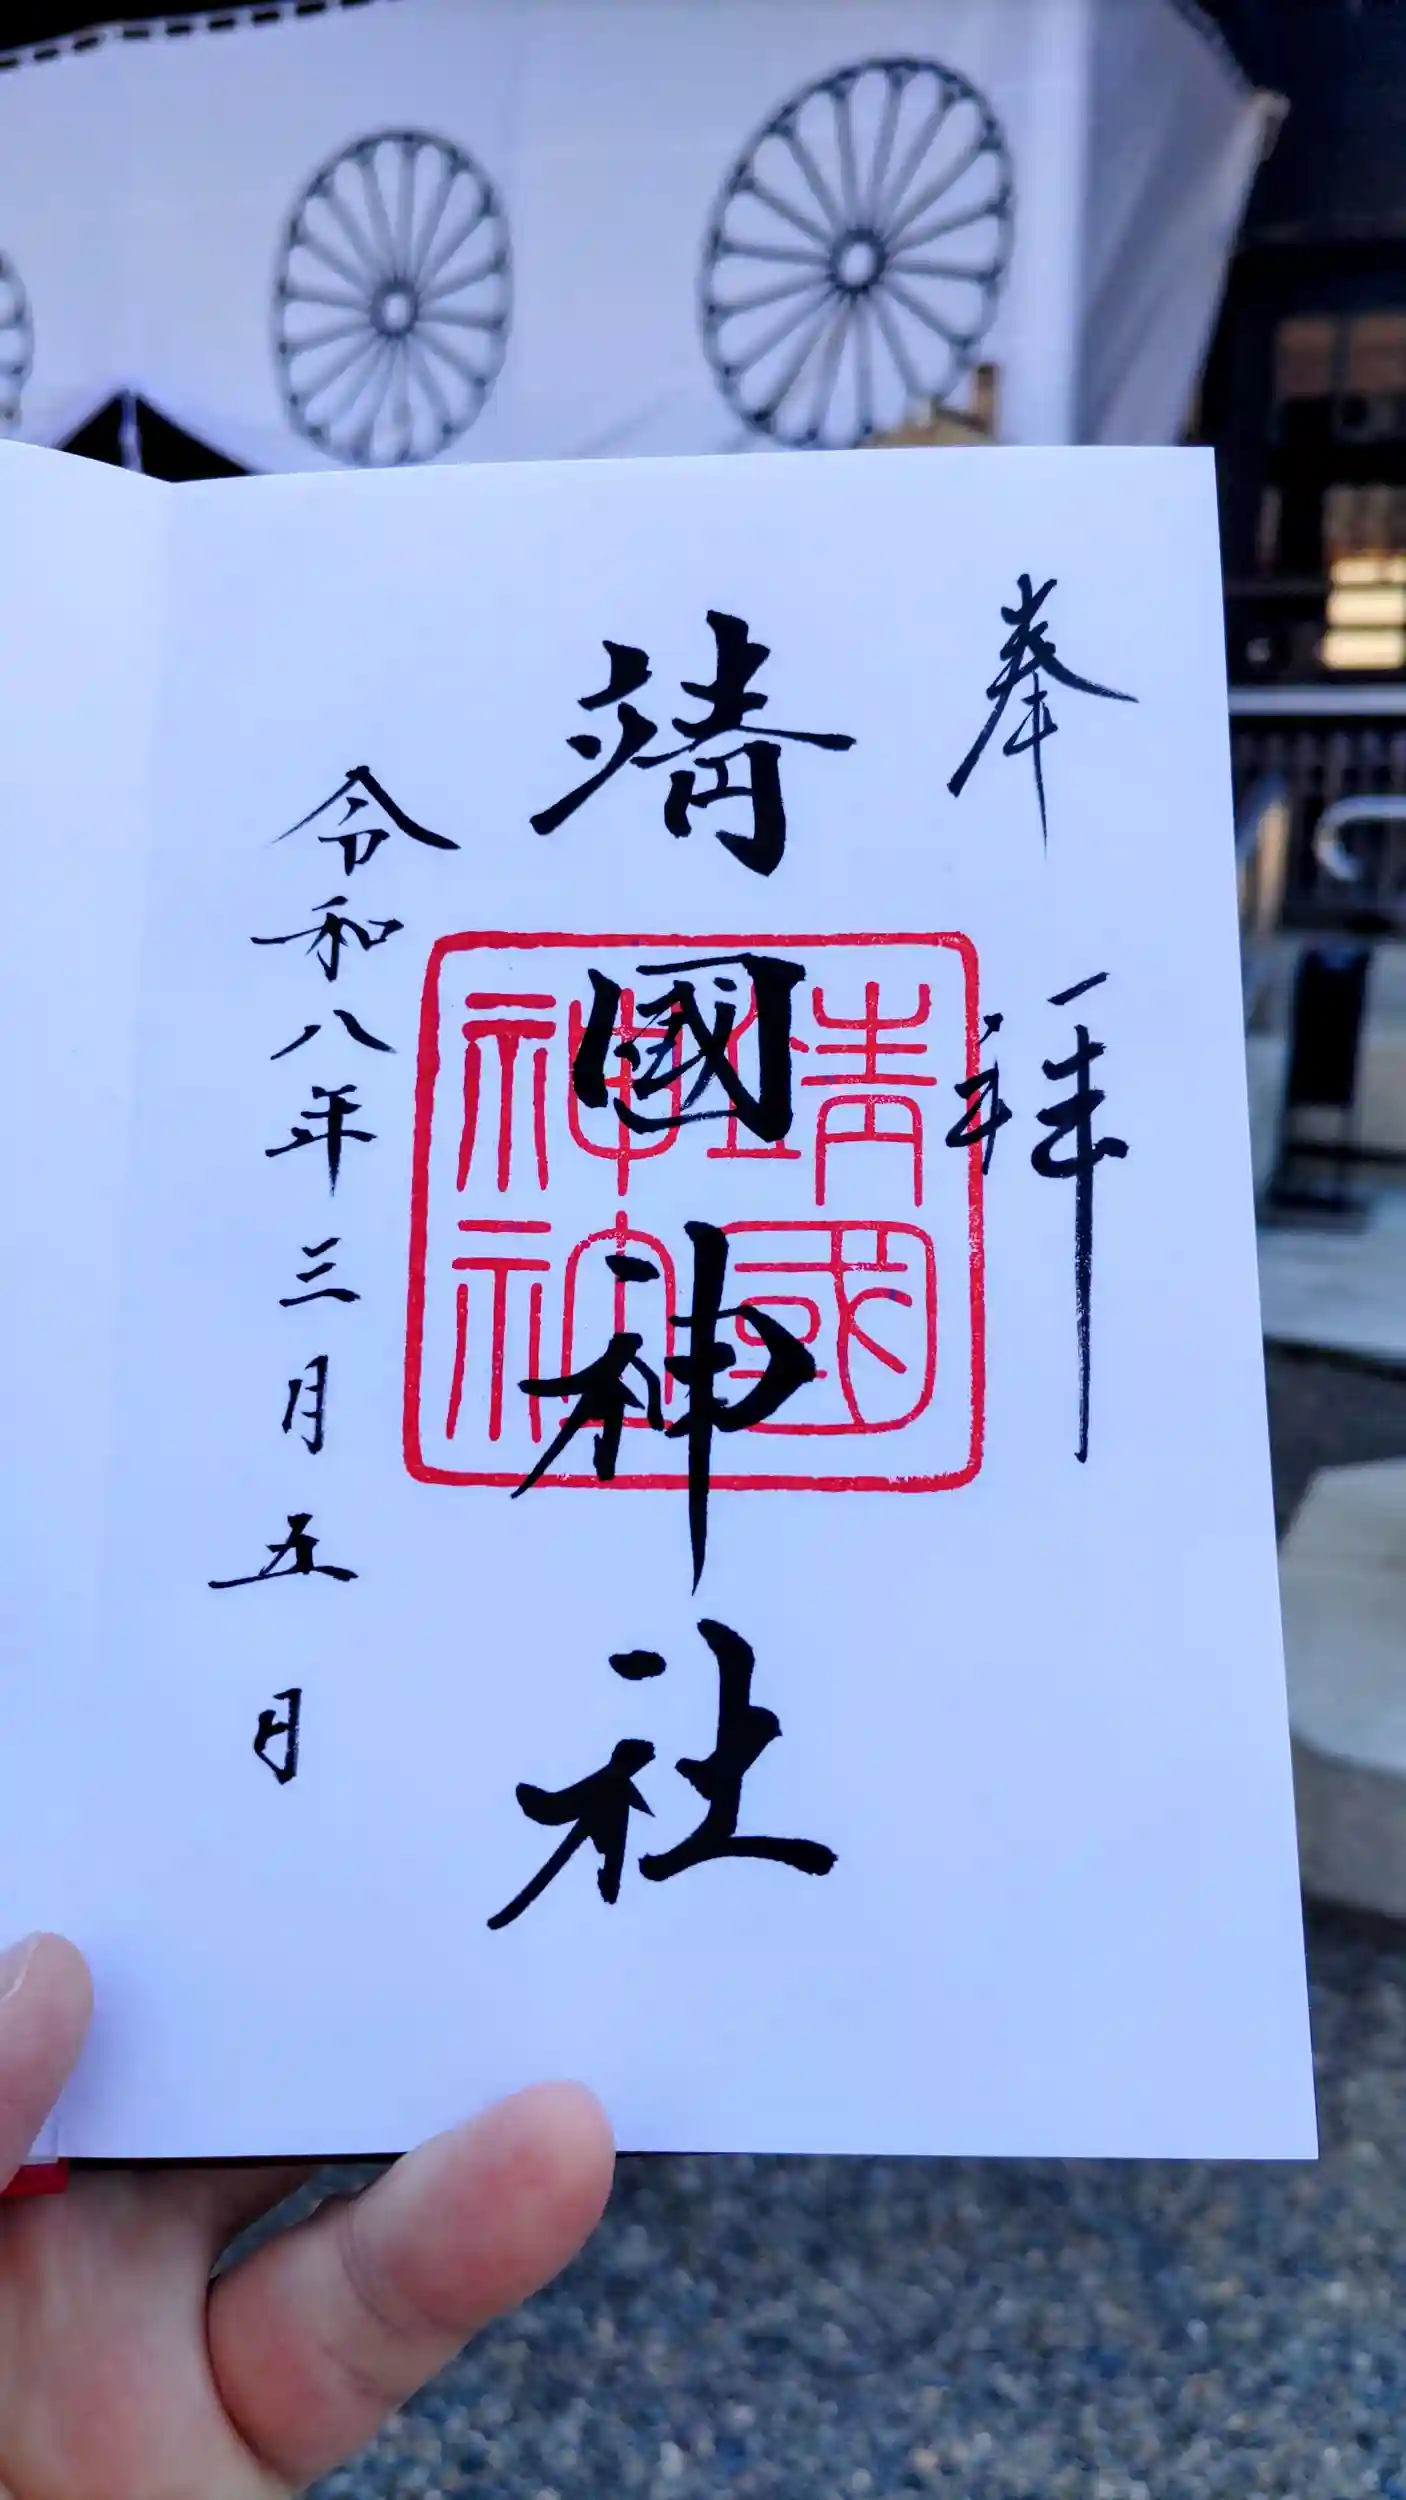 奉拝
靖國神社
靖國
神社
令和八年三月五日